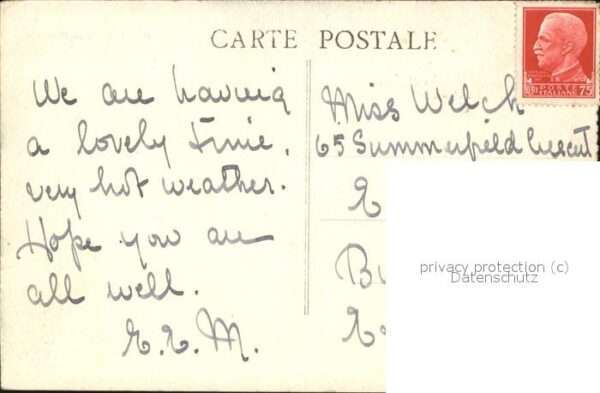 CARTE POSTALE
We are having
a lovely time,
very hot weather.
Hope you are
all well.
E.E.M.
Miss Welch
65 Summerfield Crescent
E
B
E
privacy protection (c)
Datenschutz
POSTE
ITALIANE
75